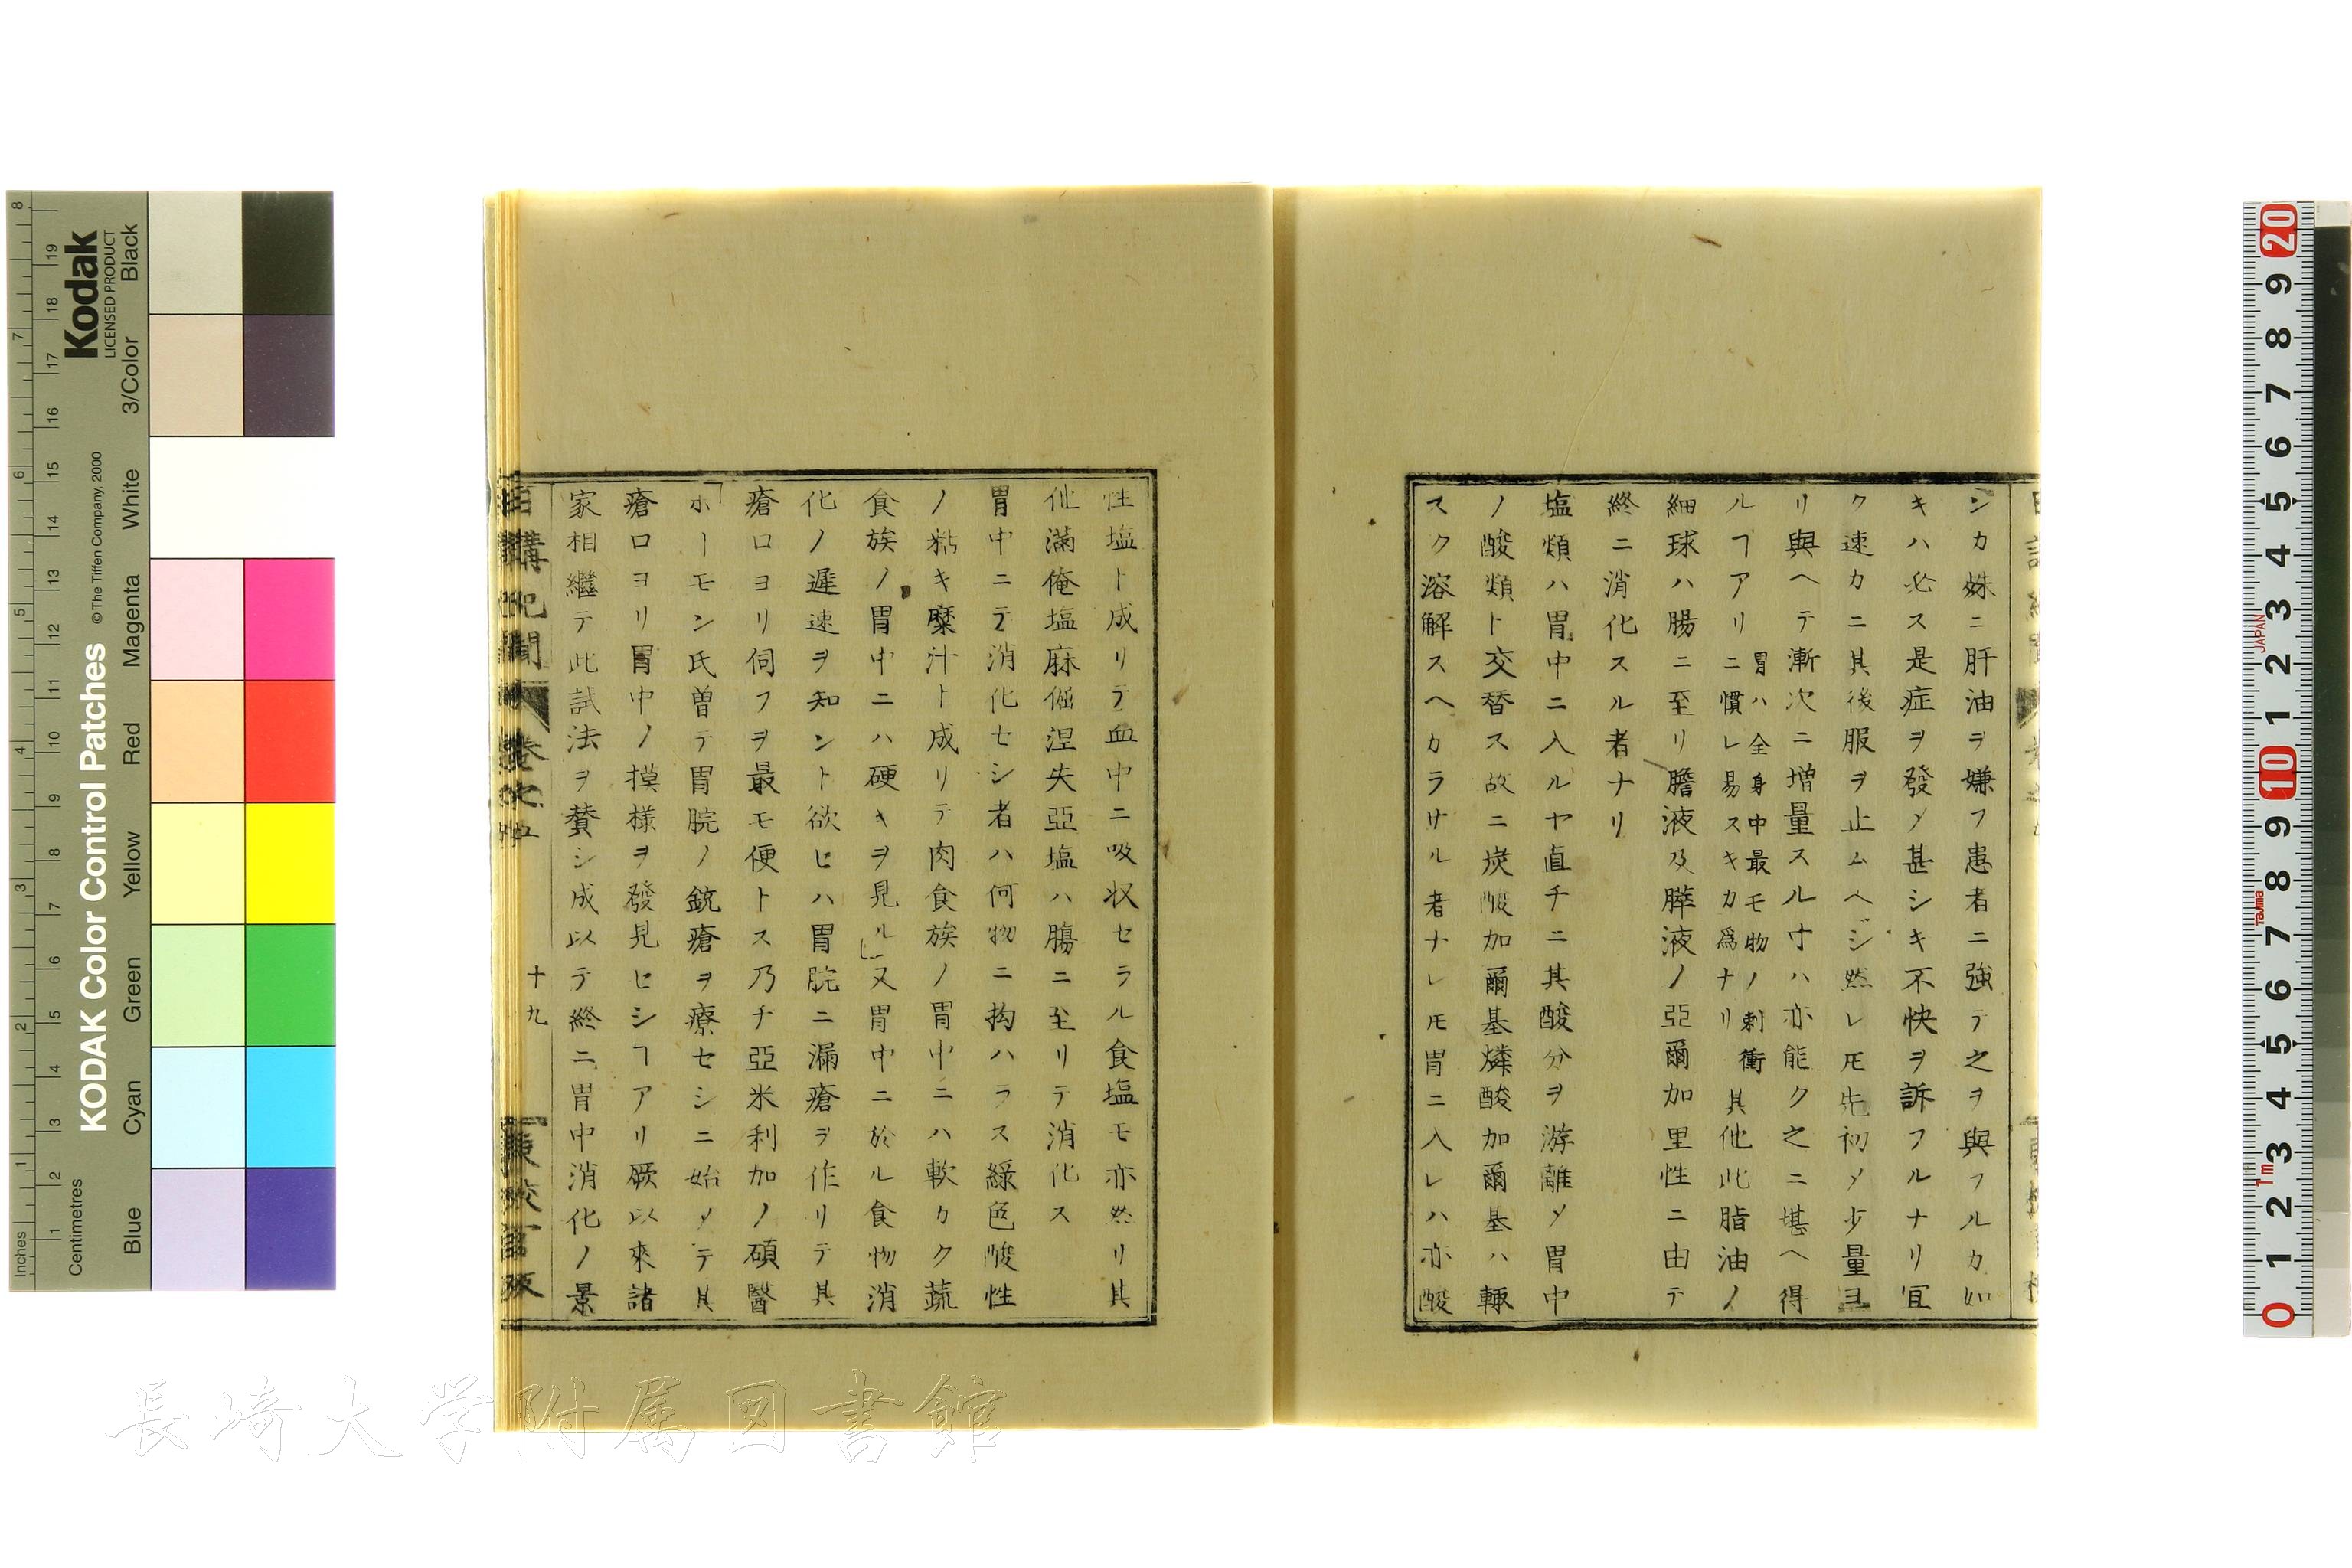 シカ姝ニ肝油ヲ嫌フ患者ニ強テ之ヲ與フルカ如
キハ必ス是症ヲ發〆甚シキ不快ヲ訴フルナリ宜
ク速カニ其後服ヲ止ムヘシ然レ𪜈先初メ少量ヨ
リ與ヘテ漸次ニ増量スル寸ハ亦能ク之ニ堪ヘ得
ルヿアリ
胃ハ全身中最モ物ノ刺衝
ニ慣レ易スキカ爲ナリ
其他此脂油ノ
細球ハ腸ニ至リ膽液及膵液ノ亞爾加里性ニ由テ
終ニ消化スル者ナリ
塩類ハ胃中ニ入ルヤ直チニ其酸分ヲ游離〆胃中
ノ酸類ト交替ス故ニ炭酸加爾基燐酸加爾基ハ輙
スク溶解スヘカラサル者ナレ𪜈胃ニ入レハ亦酸
性塩ト成リテ血中ニ吸収セラル食塩モ亦然リ其
他滿俺塩麻倔涅失亞塩ハ腸ニ至リテ消化ス
胃中ニテ消化セシ者ハ何物ニ拘ハラス綠色酸性
ノ粘キ糜汁ト成リテ肉食族ノ胃中ニハ軟カク蔬
食族ノ胃中ニハ硬キヲ見ル又胃中ニ於ル食物消
化ノ遲速ヲ知ント欲セハ胃脘ニ漏瘡ヲ作リテ其
瘡口ヨリ伺フヲ最モ便トス乃チ亞米利加ノ碩醫
ボーモン氏曽テ胃脘ノ銃瘡ヲ療セシニ始メテ其
瘡口ヨリ胃中ノ摸様ヲ發見セシヿアリ厥以來諸
家相繼テ此試法ヲ賛シ成以テ終ニ胃中消化ノ景
日講紀聞
卷之五
十九
官版
長崎大学附属図書館
Kodak
LICENSED PRODUCT
KODAK Color Control Patches
© The Tiffen Company, 2000
Inches
Centimetres
Blue
Cyan
Green
Yellow
Red
Magenta
White
3/Color
Black
JAPAN
Tajima
1m